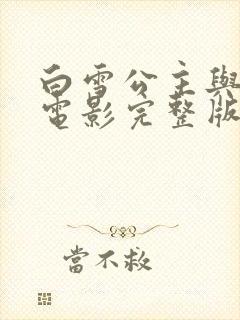 白雪公主與
電影完整版
當不救